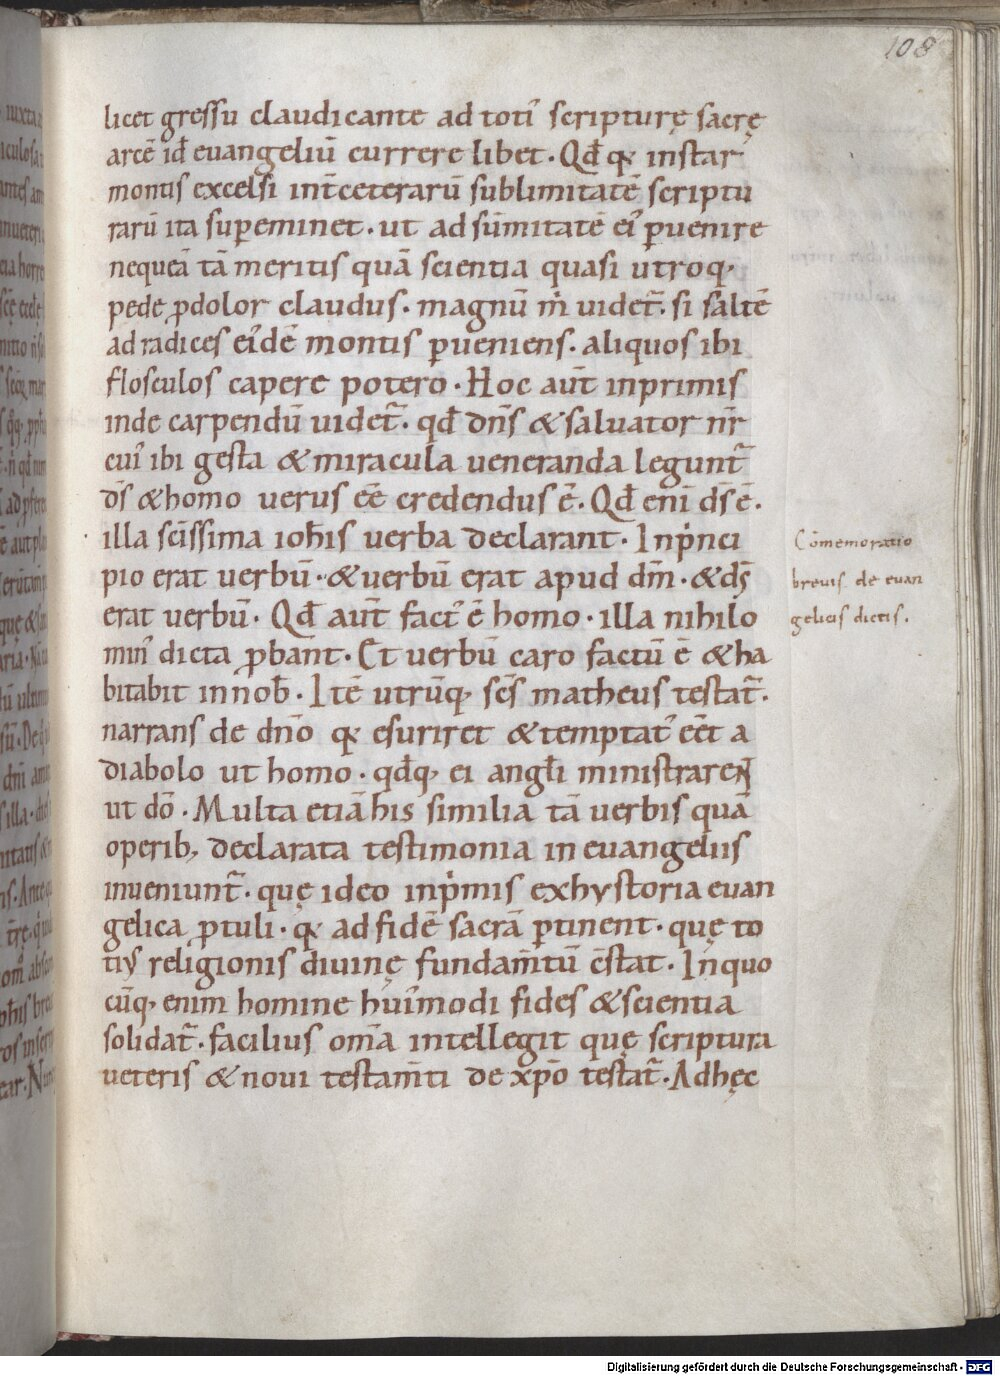 108
licet gressu claudicante ad toti᾽ scripturę sacrę
arcē id̄ euangeliū currere libet. Qd̄ qꝛ instar
montis excelsi int̄ceterarū sublimitatē scriptu
rarū ita suꝑeminet. ut ad sūmitatē ei᾽ ꝑuenire
nequeā tā meritis quā scientia quasi utroq;
pede ꝓdolor claudus. magnū m̄ uidet̄. si saltē
ad radices ei᾽dē montis ꝑueniens. aliquos ibi
flosculos capere potero. Hoc aūt inprimis
inde carpendū uidet̄. qd̄ dn̄s & saluator nr̄
cui᾽ ibi gesta & miracula ueneranda legunt̄
ds̄ & homo uerus eē credendus ē. Qd̄ enī ds̄ ē.
illa scīssima ioh̄is uerba declarant. Inp̄nci
pio erat uerbū. & uerbū erat apud dm̄. & ds̄
erat uerbū. Qd̄ aūt fact᾽ ē homo. illa nihilo
min᾽ dicta ꝓbant. Et uerbū caro factū ē & ha
bitabit in nob̄. Itē utrūq; sc̄s matheus testat̄.
narrans de dn̄o qꝛ esuriret & temptat᾽ eēt a
diabolo ut homo. qd̄q; ei angl̄i ministrarent
ut dō. Multa etiā his similia tā uerbis quā
operib; declarata testimonia in euangeliis
inueniunt̄. quę ideo inp̄mis ex hystoria euan
gelica ꝓtuli. qꝛ ad fidē sacrā ꝑtinent. quę to
ti᾽ religionis diuinę fundam̄tū c̄stat. In quo
cūq; enim homine hui᾽modi fides & scientia
solidat̄. facilius om̄a intellegit quę scriptura
ueteris & noui testam̄ti de xp̄o testat̄. Ad hęc
Cōmemoratio
breuis de euan
gelicis dictis.
Digitalisierung gefördert durch die Deutsche Forschungsgemeinschaft - DFG